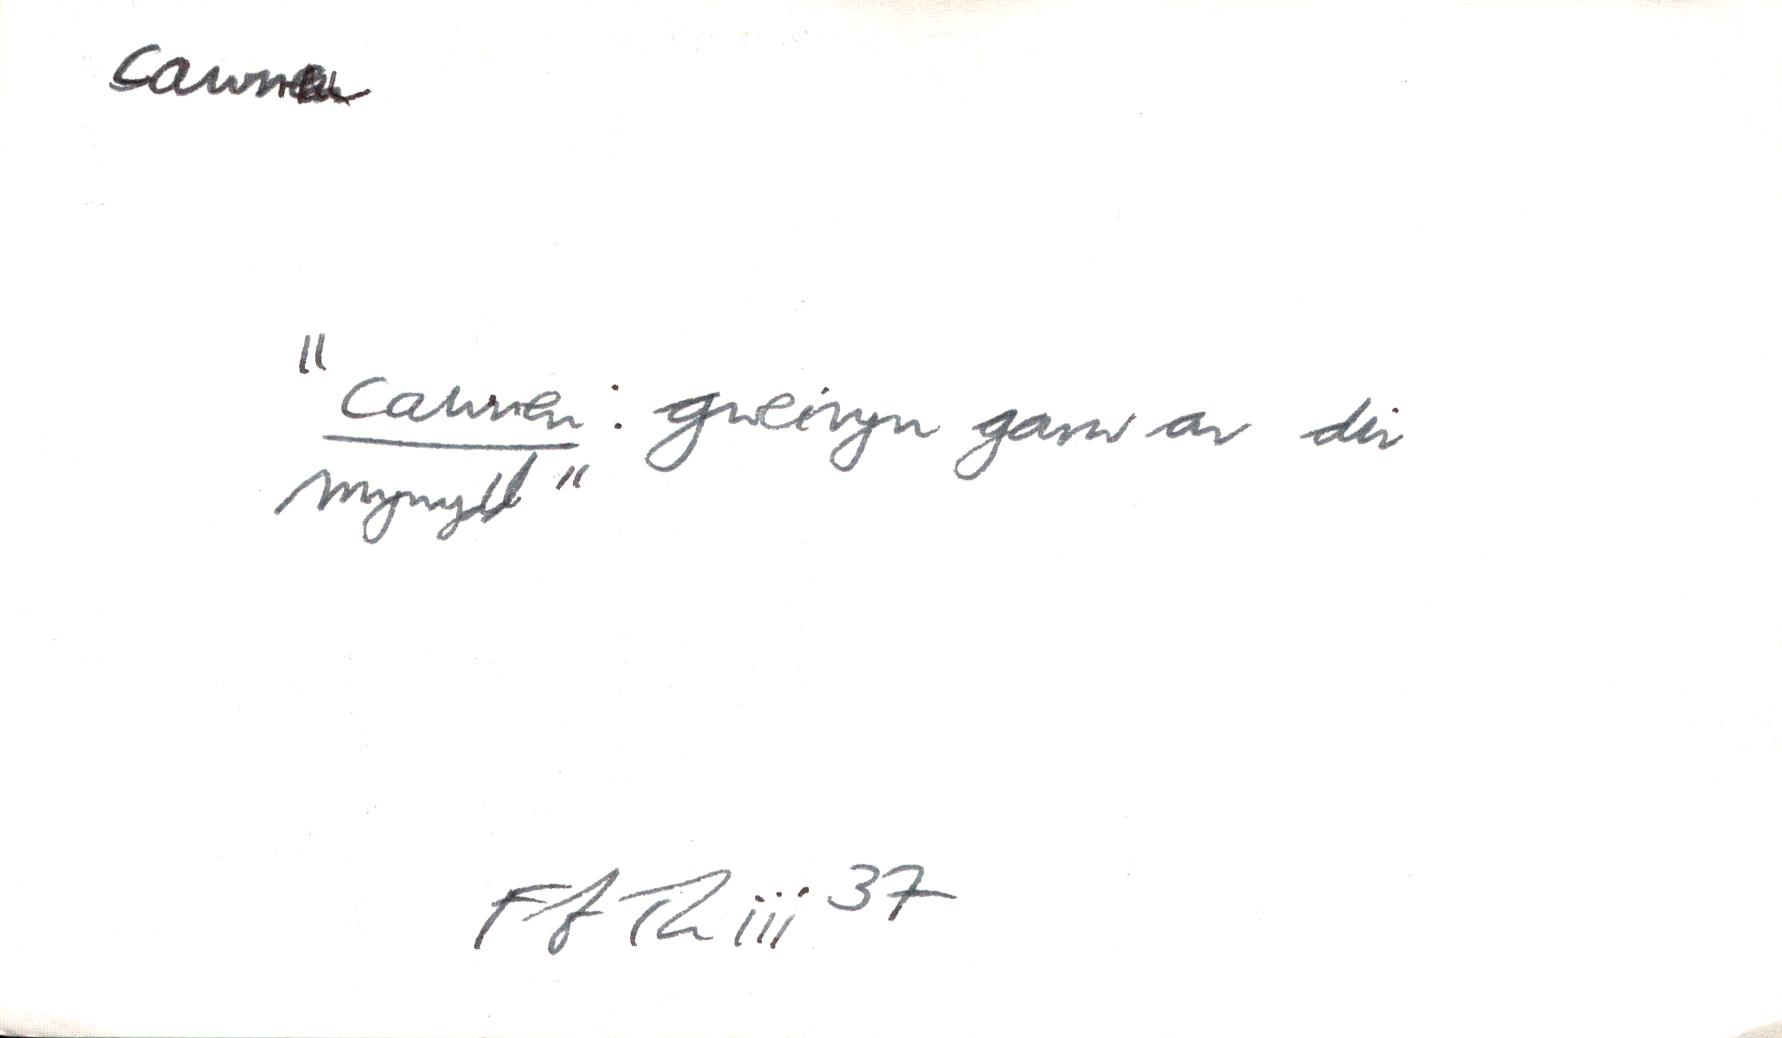 cawnen
"cawnen: gweiryn garw ar dir
mynydd"
Ff Th iii 37